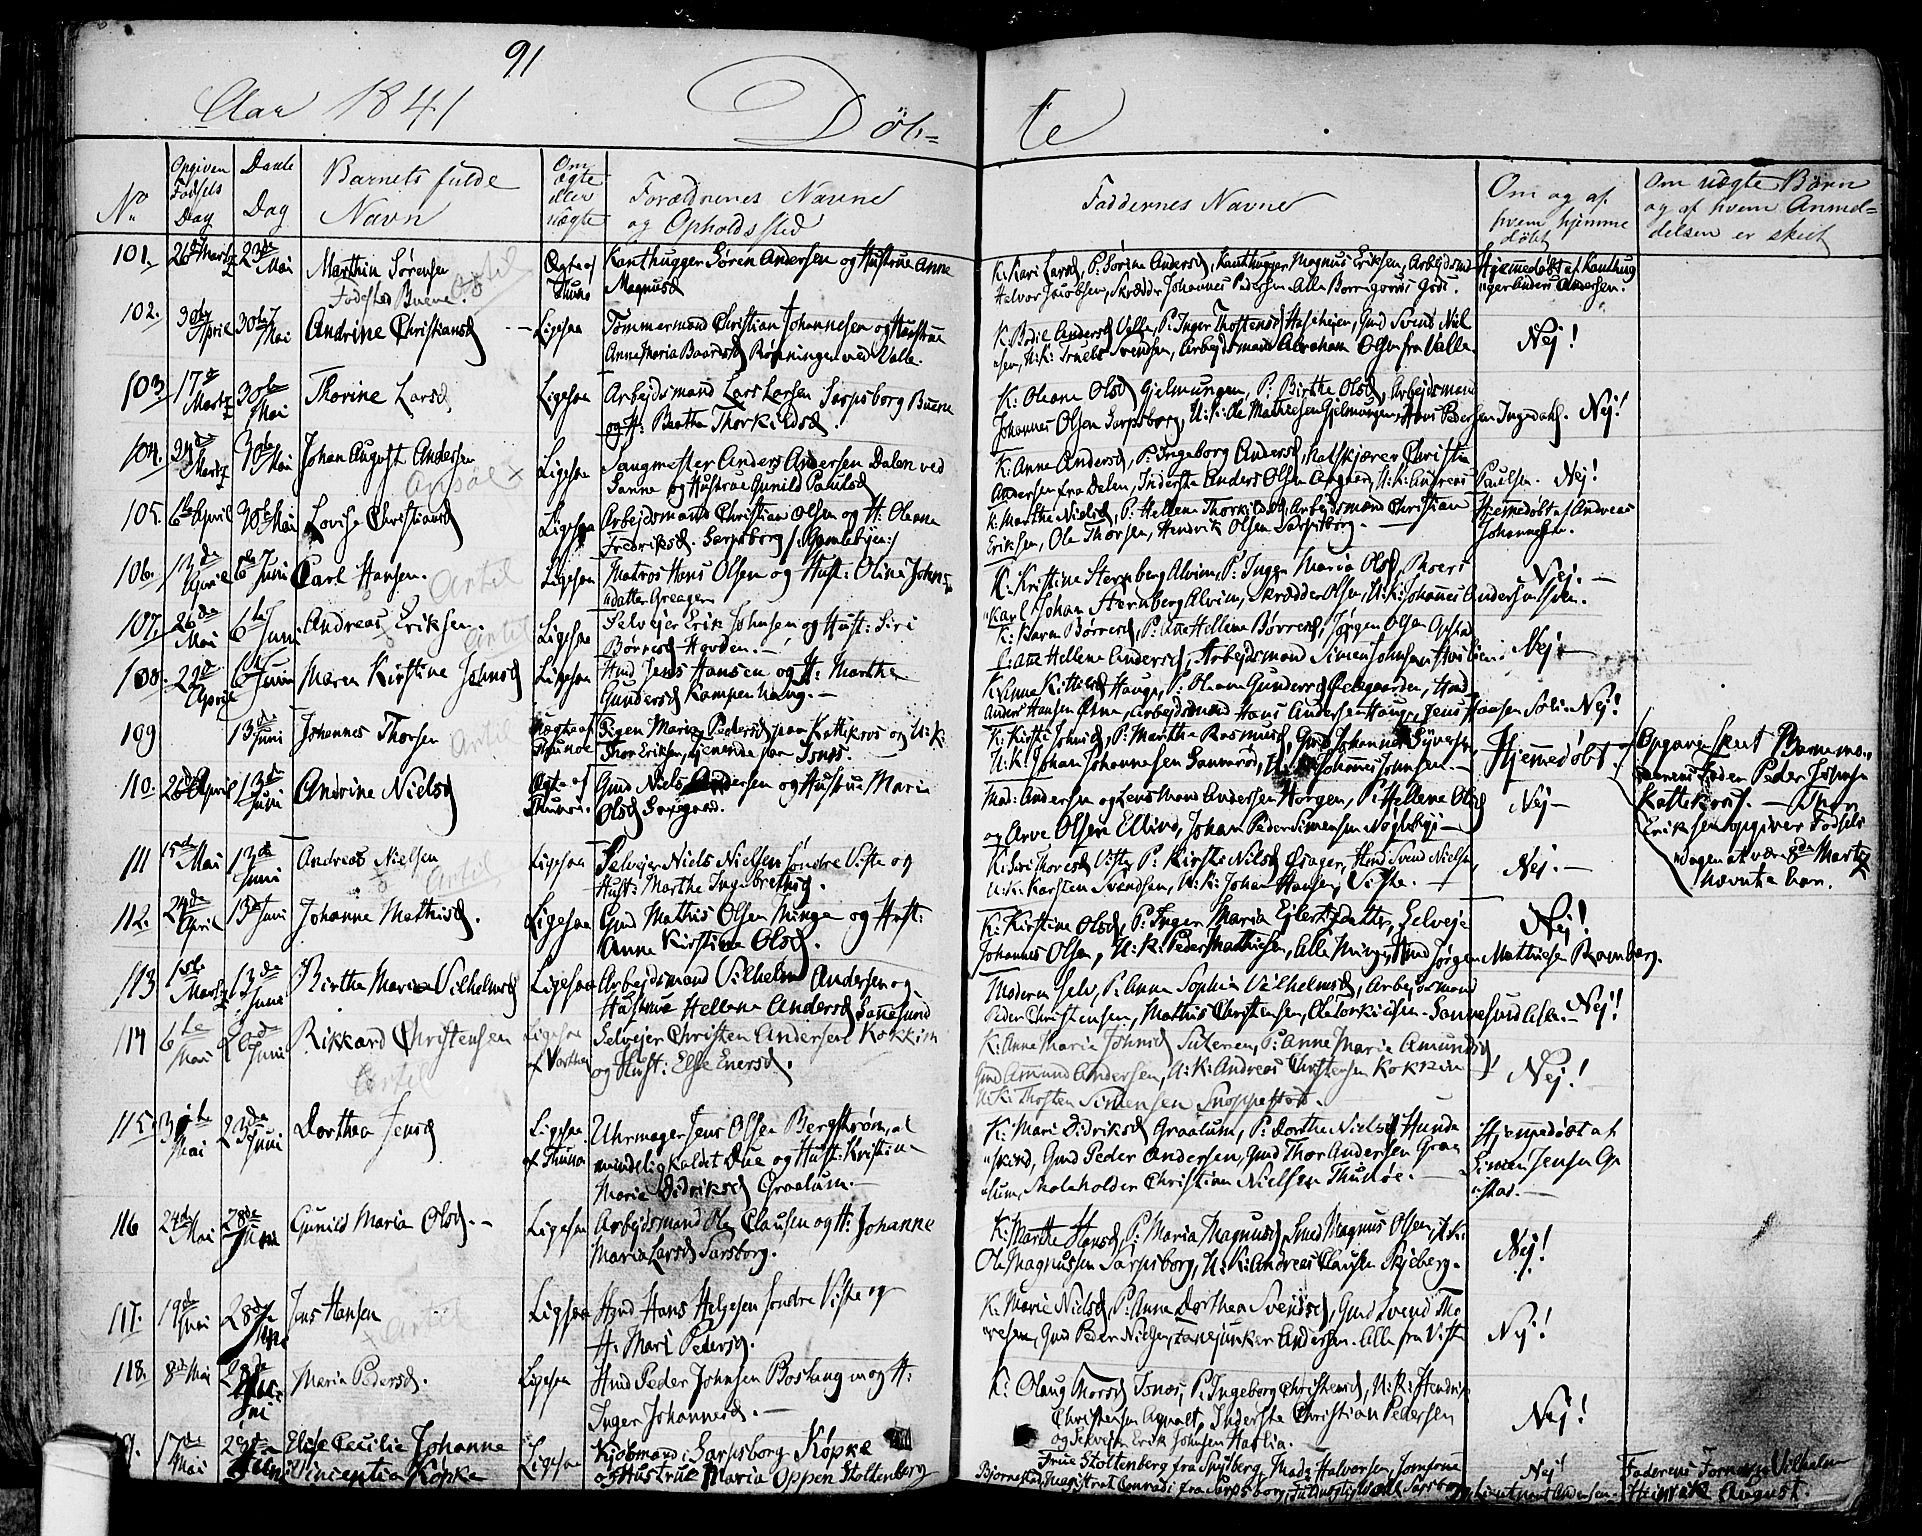 91
Aar 1841
Døb=
te
No
Opgiven Fødsels Dag
Daabs Dag
Barnets fulde Navn
Om ægte eller uægte
Forældrenes Navne og Opholdssted
Faddernes Navne
Om og af hvem hjemme døbt
Om uægte Børn og af hvem Anmel= delsen er skeet
101. 26de Martz 23de Mai Marthin Sørensen Ægte af Kanthugger Søren Andersen og Hustrue Anne
Fødested Buene. Artil Thunø Magnusd
K: Kari Larsd, P: Sørine Andersd, Kanthugger Magnus Eriksen, Arbejdsmd Hjemmedøbt af Kanthug
Halvor Jacobsen, Skrædder Johannes Pedersen Alle Borregaards Gods. ger Anders Andersen.
102. April 30te Mai Andrine Christiansd Ligesaa Tømmermand Christian Johannesen og Hustrue
Anne Maria Baardsd Rønningen ved Valle.
K: Bodil Andersd Valle, P: Inger Thostensd Haslehøien, Gmd Svend Niel Nej!
sen, U: K: Truels Svendsen, Arbejdsmand Abraham Olsen fra Valle
103. 17de Martz 30te Mai Thorine Larsd Ligesaa Arbejdsmand Lars Larsen Sarpsborg Buene
og H: Berthe Thorkildsd.
K: Oleane Olsd Gjelmungen, P: Birthe Olsd, Arbejdsmand
Johannes Olsen Sarpsborg, U: K: Ole Mathiesen Gjelmungen, Hans Pedersen Ingedahl. Nej!
104. Martz 30te Mai Johan August Andersen Ligesaa Saugmester Anders Andersen Dalen ved
Artil Sanne og Hustrue Gunild Paulsd
K: Anne Andersd, P: Ingeborg Andersd, Christian
Andersen fra Dalen, Inderste Anders Olsen, U: K: Andreas Paulsen. Nej!
105. 6te April 30te Mai Lovise Christiansd Ligesaa Arbejdsmand Christian Olsen og H: Oleane
Fredriksd. Sarpsborg /: Gamlebyen :/
K: Marthe Nielsd, P: Hellene Thorkildsd, Arbejdsmand Christian Hjemmedøbt af Andreas
Eriksen, Ole Thorsen, Hendrik Olsen Sarpsborg. Johannesen.
106. 13de April 6te Juni Carl Hansen. Artil Ligesaa Matros Hans Olsen og Hust: Oline Johns
datter Greager
K: Kristine Sternberg Alvim, P: Inger Maria Olsd, Nej.
Karl Johan Sternberg Alvim, Skrædder Olsen, U: K: Johannes Andersen
107. 26de Mai 6te Juni Andreas Eriksen. Artil Ligesaa Selvejer Erik Johnsen og Hust: Siri
Børresd Hauden.
K: Karen Børresd, P: Ane Hellene Børresd, Jørgen Olsen Opstad
P: Ane Hellene Andersd, Arbejdsmand Simen Johnsen Nej
108. 29de April 6te Juni Maren Kirstine Johnsd Ligesaa Hmd Jens Hansen og H: Marthe
Gundersd Kampenhaug.
K: Anne Kittilsd Hauge, P: Oleana Gundersd Ødegaarden, Hmd
Anders Hansen, Arbejdsmand Hans Andersen Haug, Jens Haasen Solie Nej!
109 13de Juni Johannes Thorsen Artil Uægte af Pigen Marie Pedersd paa Kattikros og U: K:
Thunø Thor Eriksen, tjenende paa Tonos.
K: Kirsti Johnsd, P: Marthe Rasmusd, Gmd Johannes Syversen
U: K: Johan Johannesen Sannerød, U: K: Johannes Johnsen. Hjemmedøbt
Opgaven skeet Barnemo=
derens Fader Peder Johnsen
Kattikros. — Thor
Eriksen opgiver Fødsels
dagen at være Martz
nævnte Aar.
110. 26de April 13de Juni Andrine Nielsd Ægte af Gmd Niels Andersen og Hustrue Maria
Thunø. Olsd
Mad: Andersen og Lensmand Andersen Horgen, P: Hellene Olsd Nej
og Arve Olsen Elline, Johan Peder Simensen Nøgleby
111 15de Mai 13de Juni Andreas Nielsen Artil Ligesaa Selvejer Niels Nielsen Søndre Viste og
Hust: Marthe Ingebrethsd.
K: Siri Thoresd Viste, P: Kirsti Nilsd, Hmd Svend Nielsen, Nej.
U: K: Karsten Svendsen, U: K: Johan Hansen, Viste.
112. 24de April 13de Juni Johanne Mathisd. Ligesaa Gmd Mathis Olsen Minge og Hust:
Anne Kirstine Olsd.
K: Kirstine Olsd, P: Inger Maria Ejlertsdatter, Selveje Nej!
Johannes Olsen, U: K: Peder Mathiesen, Alle Minge, Hmd Jørgen Mathiesen Ramberg.
113 1ste Martz 13de Juni Birthe Marie Vilhelmsd Ligesaa Arbejdsmand Vilhelm Andersen og
Hustrue Hellene Andersd Sannesund
Moderen selv, P: Anna Sophia Vilhelmsd, Arbejdsmand
Peder Christensen, Mathis Christensen, Ole Torkildsen Sannesund alle. Nej!
114 6te Mai Juni Rikkard Christensen Ligesaa Selvejer Christen Andersen Kokkim
Artil af Varteig og Hust: Else Enersd.
K: Anne Marie Johnsd, P: Anne Marie Amundsd,
Gmd Amund Andersen, U: K: Andreas Christensen Kokkim Nej!
U: K: Thosten Simensen Snoppestad.
115. Mai 23de Juni Dorthea Jensd Ligesaa Uhrmager Jens Olsen Bergstrøm, al
af Thunø mindelig kaldet Due og Hust: Kristine
Maria Didriksd Graalum.
K: Mari Didriksd Graalum, P: Dorthe Nielsd Hunda Hjemmedøbt af
skind, Gmd Peder Andersen, Gmd Thor Andersen Graa Simen Jensen Op
lum, Skoleholder Christian Nielsen Thunøe. stad.
116 24de Mai 28de Juni Gunild Maria Olsd. Ligesaa Arbejdsmand Ole Clausen og H: Johanne
Maria Larsd Sarsborg.
K: Marthe Hansd, P: Maria Magnusd, Smed Magnus Olsen, U: K:
Ole Magnussen Sarpsborg, U: K: Andreas Clausen Skjeberg. Nej!
117. 19de Mai 28de Juni Jens Hansen Artil Ligesaa Hmd Hans Helgesen Søndre Viste og
H: Mari Pedersd.
K: Marie Nielsd, P: Anne Dorthea Svendsd, Gmd Svend Tho
resen, Gmd Peder Nielsen, Fanejunker Andersen. Alle fra Viste Nej!
118. 8de Mai Juni Maria Pedersd. Ligesaa Hmd Peder Johnsen Bostangen og H:
Inger Johannesd.
K: Olaug Thorsd Tonos, P: Ingeborg Christensd, U: K: Hendrik
Christensen Agnalt, Inderste Christian Pedersen Nej!
og Selvejer Erik Johnsen Haslia.
119. 17de Mai Juni Elise Cecilie Johanne Ligesaa Kjøbmand i Sarpsborg Köpke
Vincentia Köpke og Hustrue Maria Oppen Stoltenberg
Frue Stoltenberg fra Spydberg, Mads Halvorsen Nej! Faderens Fornavn Vilhelm
Bjørnestad, Magistrat Conradi fra Sarpsborg, Sarsborg, Lieutnant Andersen. Heinrik August.